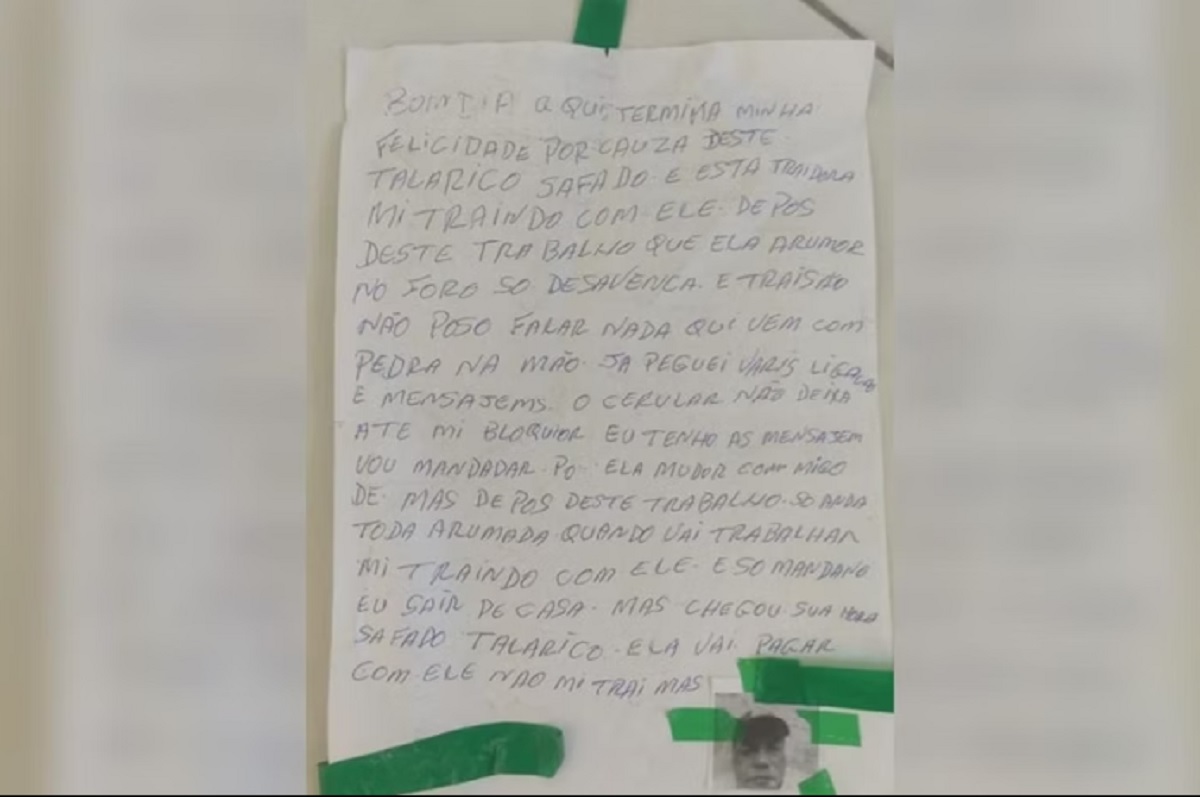 BOINTIA A QUI TERMINA MINHA
FELICIDADE POR CAUZA DESTE
TALARICO SAFADO. E ESTA TRAIDORA
MI TRAINDO COM ELE. DEPOS
DESTE TRABALHO QUE ELA ARUMOR
NO FORO SO DESAVENCA. E TRAISÃO
NÃO POSO FALAR NADA QUI VEM COM
PEDRA NA MÃO. JA PEGUEI VARIS
E MENSAJEMS. O CERULAR NÃO DEIXA
ATE MI BLOQUIOR EU TENHO AS MENSAJEM
VOU MANDADAR. PO ELA MUDOR COM MIGO
DE. MAS DEPOS DESTE TRABALHO. SO ANDA
TODA ARUMADA QUANDO VAI TRABALHAR
MI TRAINDO COM ELE. E SO MANDANO
EU SAIR DE CASA. MAS CHEGOU SUA HORA
SAFADO TALARICO. ELA VAI PAGAR
COM ELE NÃO MI TRAI MAS